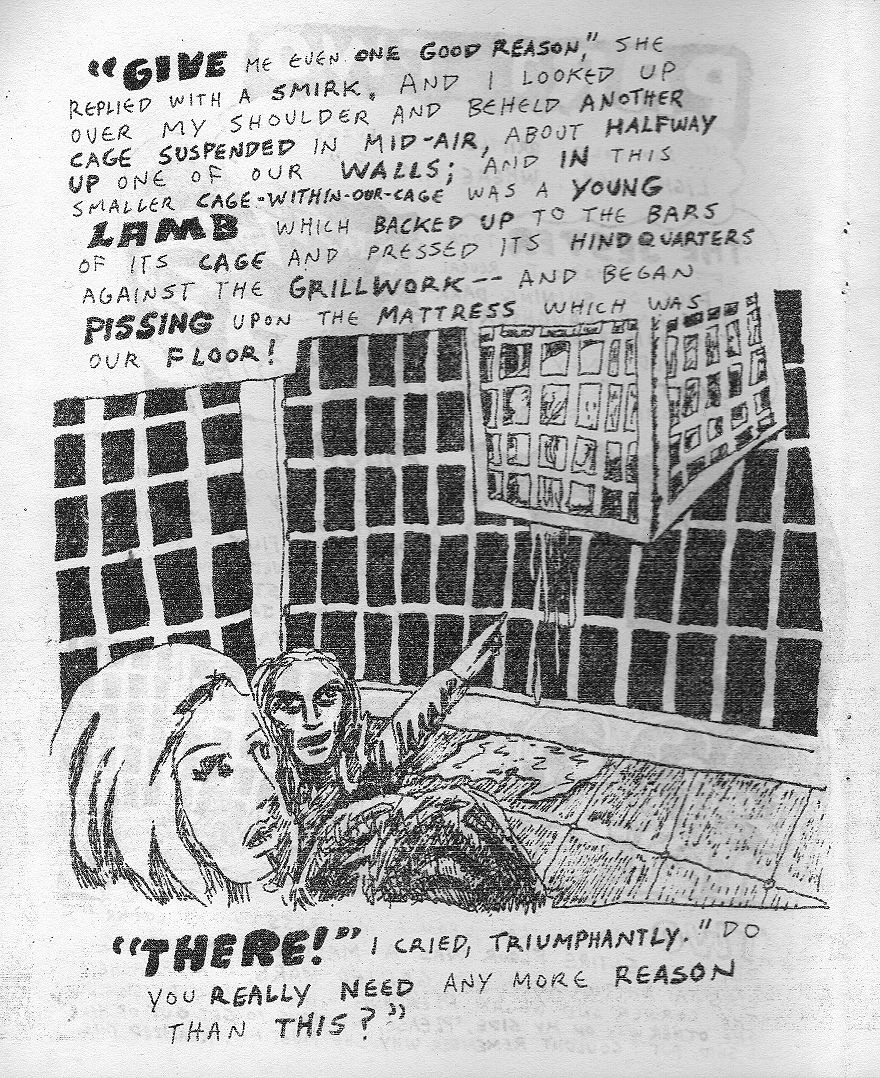 “GIVE ME EVEN ONE GOOD REASON,” SHE
REPLIED WITH A SMIRK. AND I LOOKED UP
OVER MY SHOULDER AND BEHELD ANOTHER
CAGE SUSPENDED IN MID-AIR, ABOUT HALFWAY
UP ONE OF OUR WALLS; AND IN THIS
SMALLER CAGE-WITHIN-OUR-CAGE WAS A YOUNG
LAMB WHICH BACKED UP TO THE BARS
OF ITS CAGE AND PRESSED ITS HINDQUARTERS
AGAINST THE GRILLWORK -- AND BEGAN
PISSING UPON THE MATTRESS WHICH WAS
OUR FLOOR!
“THERE!” I CRIED, TRIUMPHANTLY. “DO
YOU REALLY NEED ANY MORE REASON
THAN THIS?”